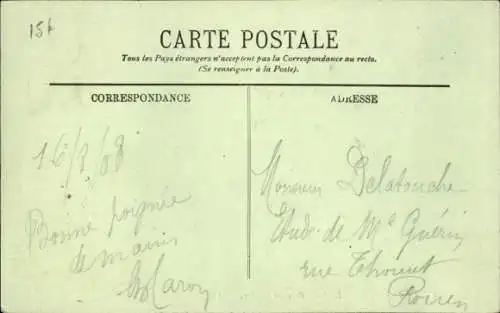 15f
CARTE POSTALE
Tous les Pays étrangers n'acceptent pas la Correspondance au recto.
(Se renseigner à la Poste).
CORRESPONDANCE
ADRESSE
16/3/08
Bonne poignée
de mains
Monsieur Delatouche
Etude de Me Guérin
rue Thouret
Rouen